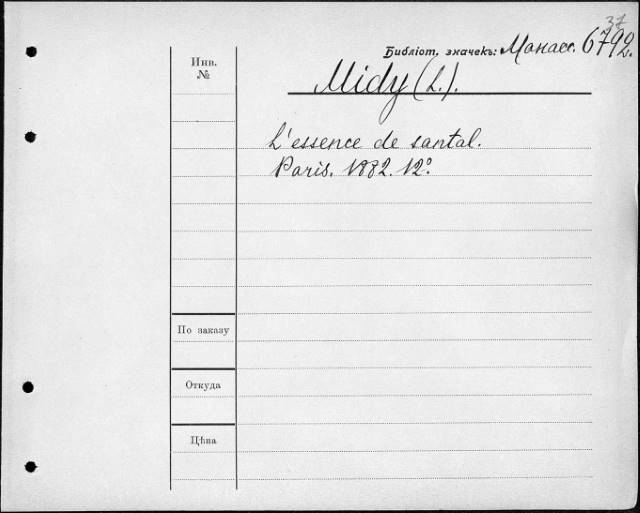 37
Библіот. значекъ: Манасс. 6792.
Инв.
№
Midy (L.).
L'essence de santal.
Paris. 1882. 12º.
По заказу
Откуда
Цѣна